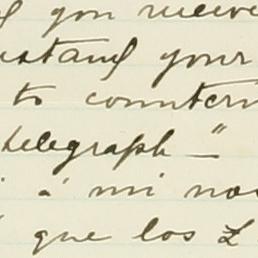 you receive
stand your
to counterm
telegraph —"
a mi no
que los £